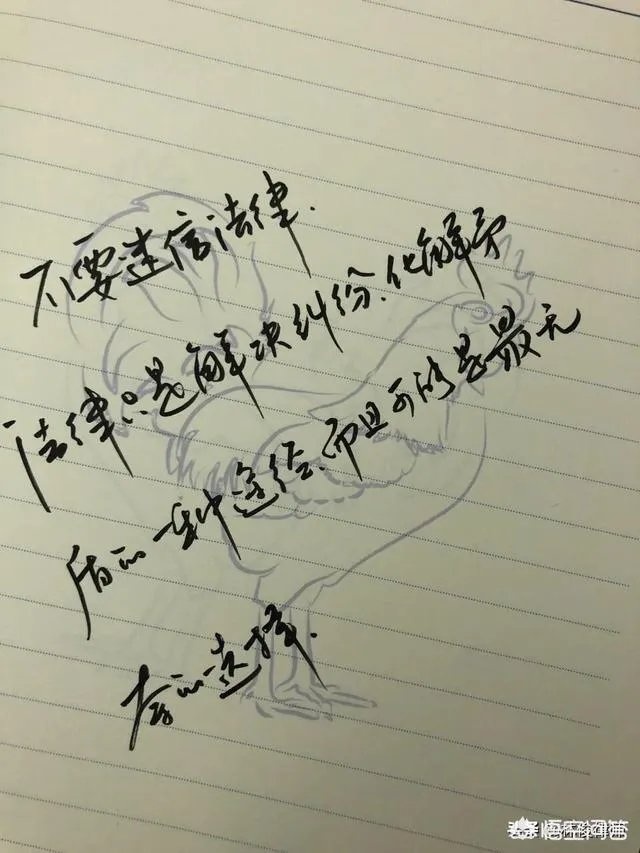 不要迷信法律.
法律只是解决纠纷.化解矛
盾的一种途径.而且可能是最无
奈的选择.
悟空问答